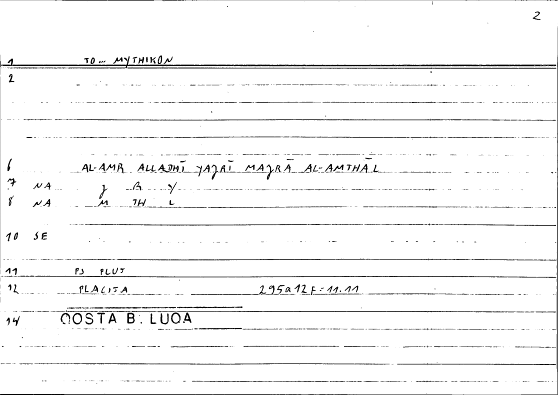 2
1 TO- MYTHIKÓN
2
6 AL-AMR ALLADHĪ YAJRĪ MAJRĀ AL-AMTHĀL
7 NA J R Y
8 NA M TH L
10 SE
11 PS PLUT
12 PLACITA 295a12F-11.11
14 QOSTA B. LUQA